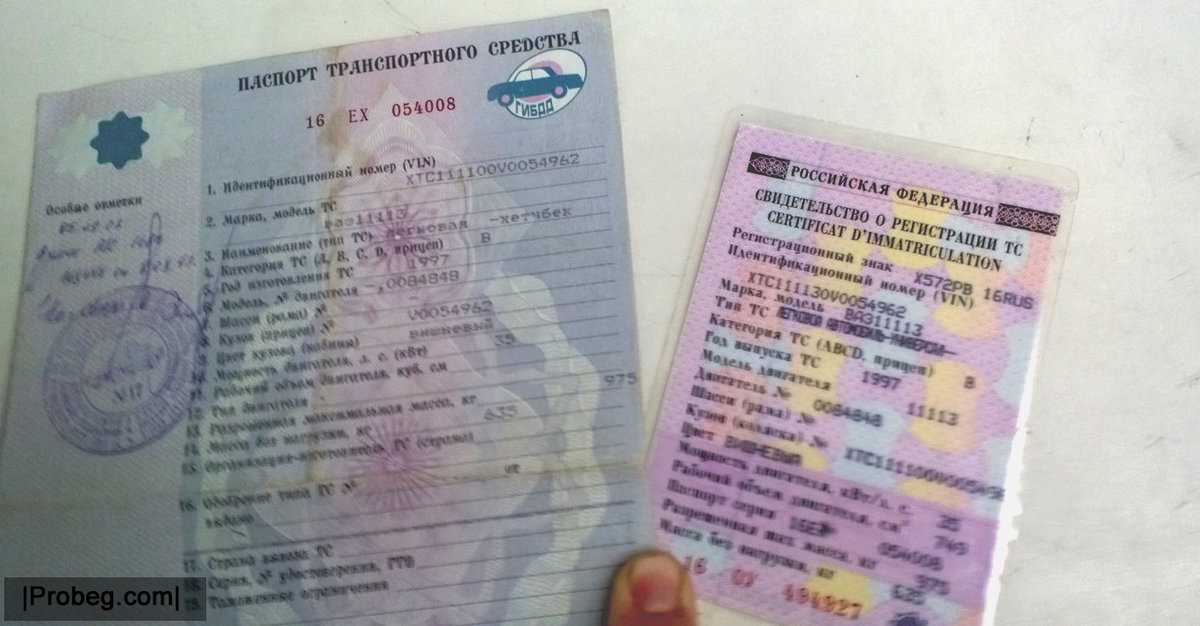 ПАСПОРТ ТРАНСПОРТНОГО СРЕДСТВА
16 ЕХ 054008
ГИБДД
Особые отметки
1. Идентификационный номер (VIN)
XTC111100V0054962
2. Марка, модель ТС
ВАЗ11113
3. Наименование (тип ТС) Легковая -хетчбек
4. Категория ТС (А, В, С, D, прицеп) В
5. Год изготовления ТС 1997
6. Модель, № двигателя -,0084848
7. Шасси (рама) № -
8. Кузов (прицеп) № V0054962
9. Цвет кузова (кабины) вишневый
10. Мощность двигателя, л. с. (кВт) 35
11. Рабочий объем двигателя, куб. см
12. Тип двигателя
13. Разрешенная максимальная масса, кг 975
14. Масса без нагрузки, кг 635
15. Организация-изготовитель ТС (страна)
16. Одобрение типа ТС №
17. Страна вывоза ТС
18. Серия, № удостоверения, ГТД
19. Таможенные ограничения
РОССИЙСКАЯ ФЕДЕРАЦИЯ
СВИДЕТЕЛЬСТВО О РЕГИСТРАЦИИ ТС
CERTIFICAT D'IMMATRICULATION
Регистрационный знак Х572РВ 16RUS
Идентификационный номер (VIN)
XTC111130V0054962
Марка, модель ВАЗ11113
Тип ТС ЛЕГКОВОЙ АВТОМОБИЛЬ
Категория ТС (ABCD, прицеп) В
Год выпуска ТС 1997
Модель двигателя 11113
Двигатель № 0084848
Шасси (рама) №
Кузов (коляска) № XTC111100V005496
Цвет ВИШНЕВЫЙ
Мощность двигателя, кВт/л. с. 35
Рабочий объем двигателя, см³ 749
Паспорт серия 16ЕХ 054008
Разрешенная max масса, кг 975
Масса без нагрузки, кг 635
16 ОУ 494927
|Probeg.com|